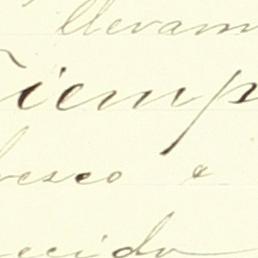 llevam
Tiemp
resco a
ecido